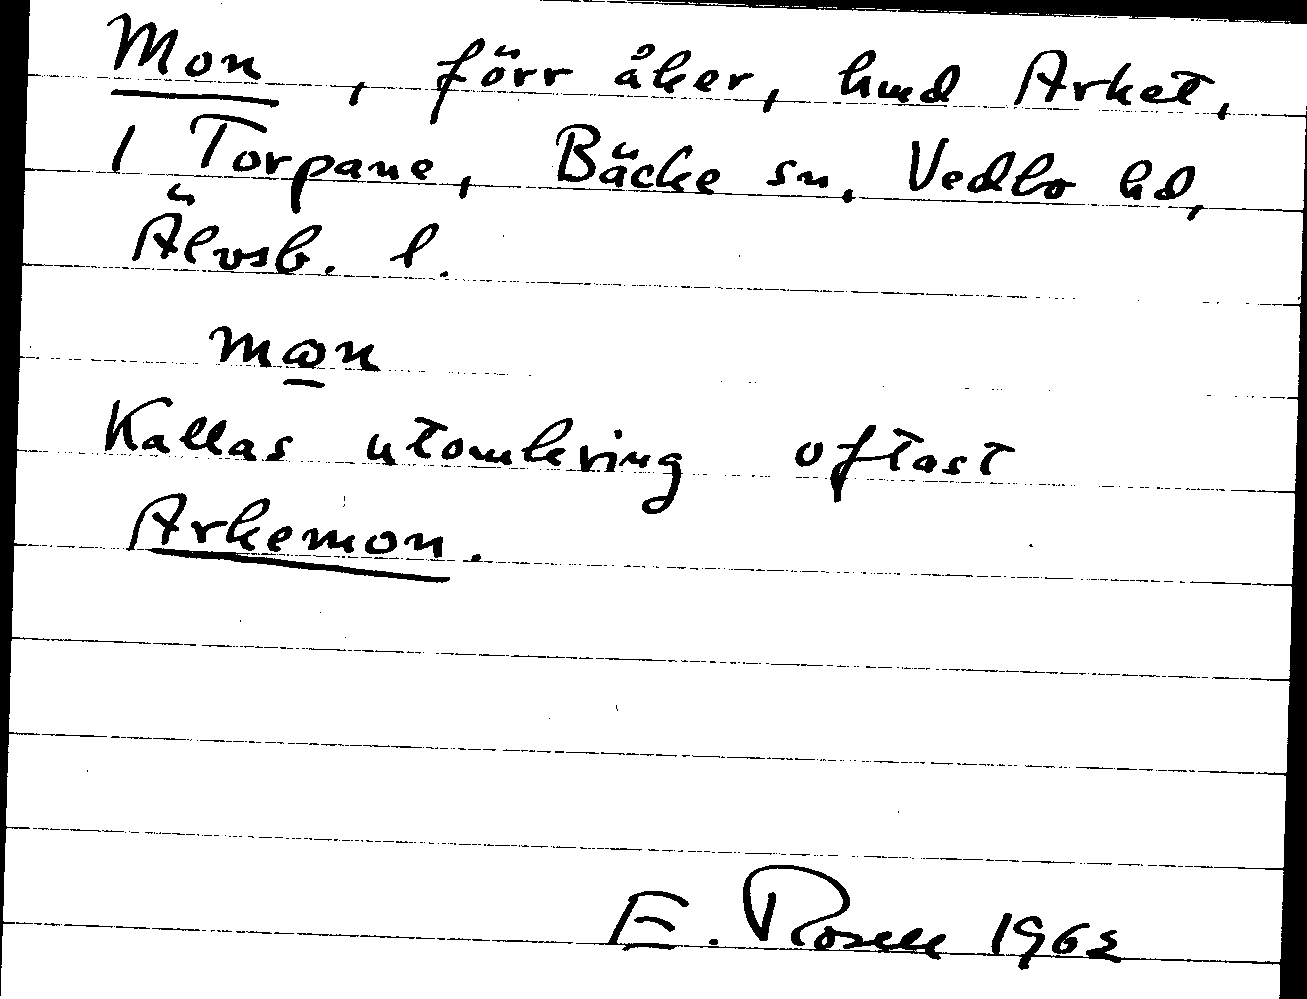 Mon, förr åker, hmd Arket,
1 Torpane, Bäcke sn, Vedbo hd,
Älvsb. l.
mωn
Kallas utomkring oftast
Arkemon.
E. Rosell 1962